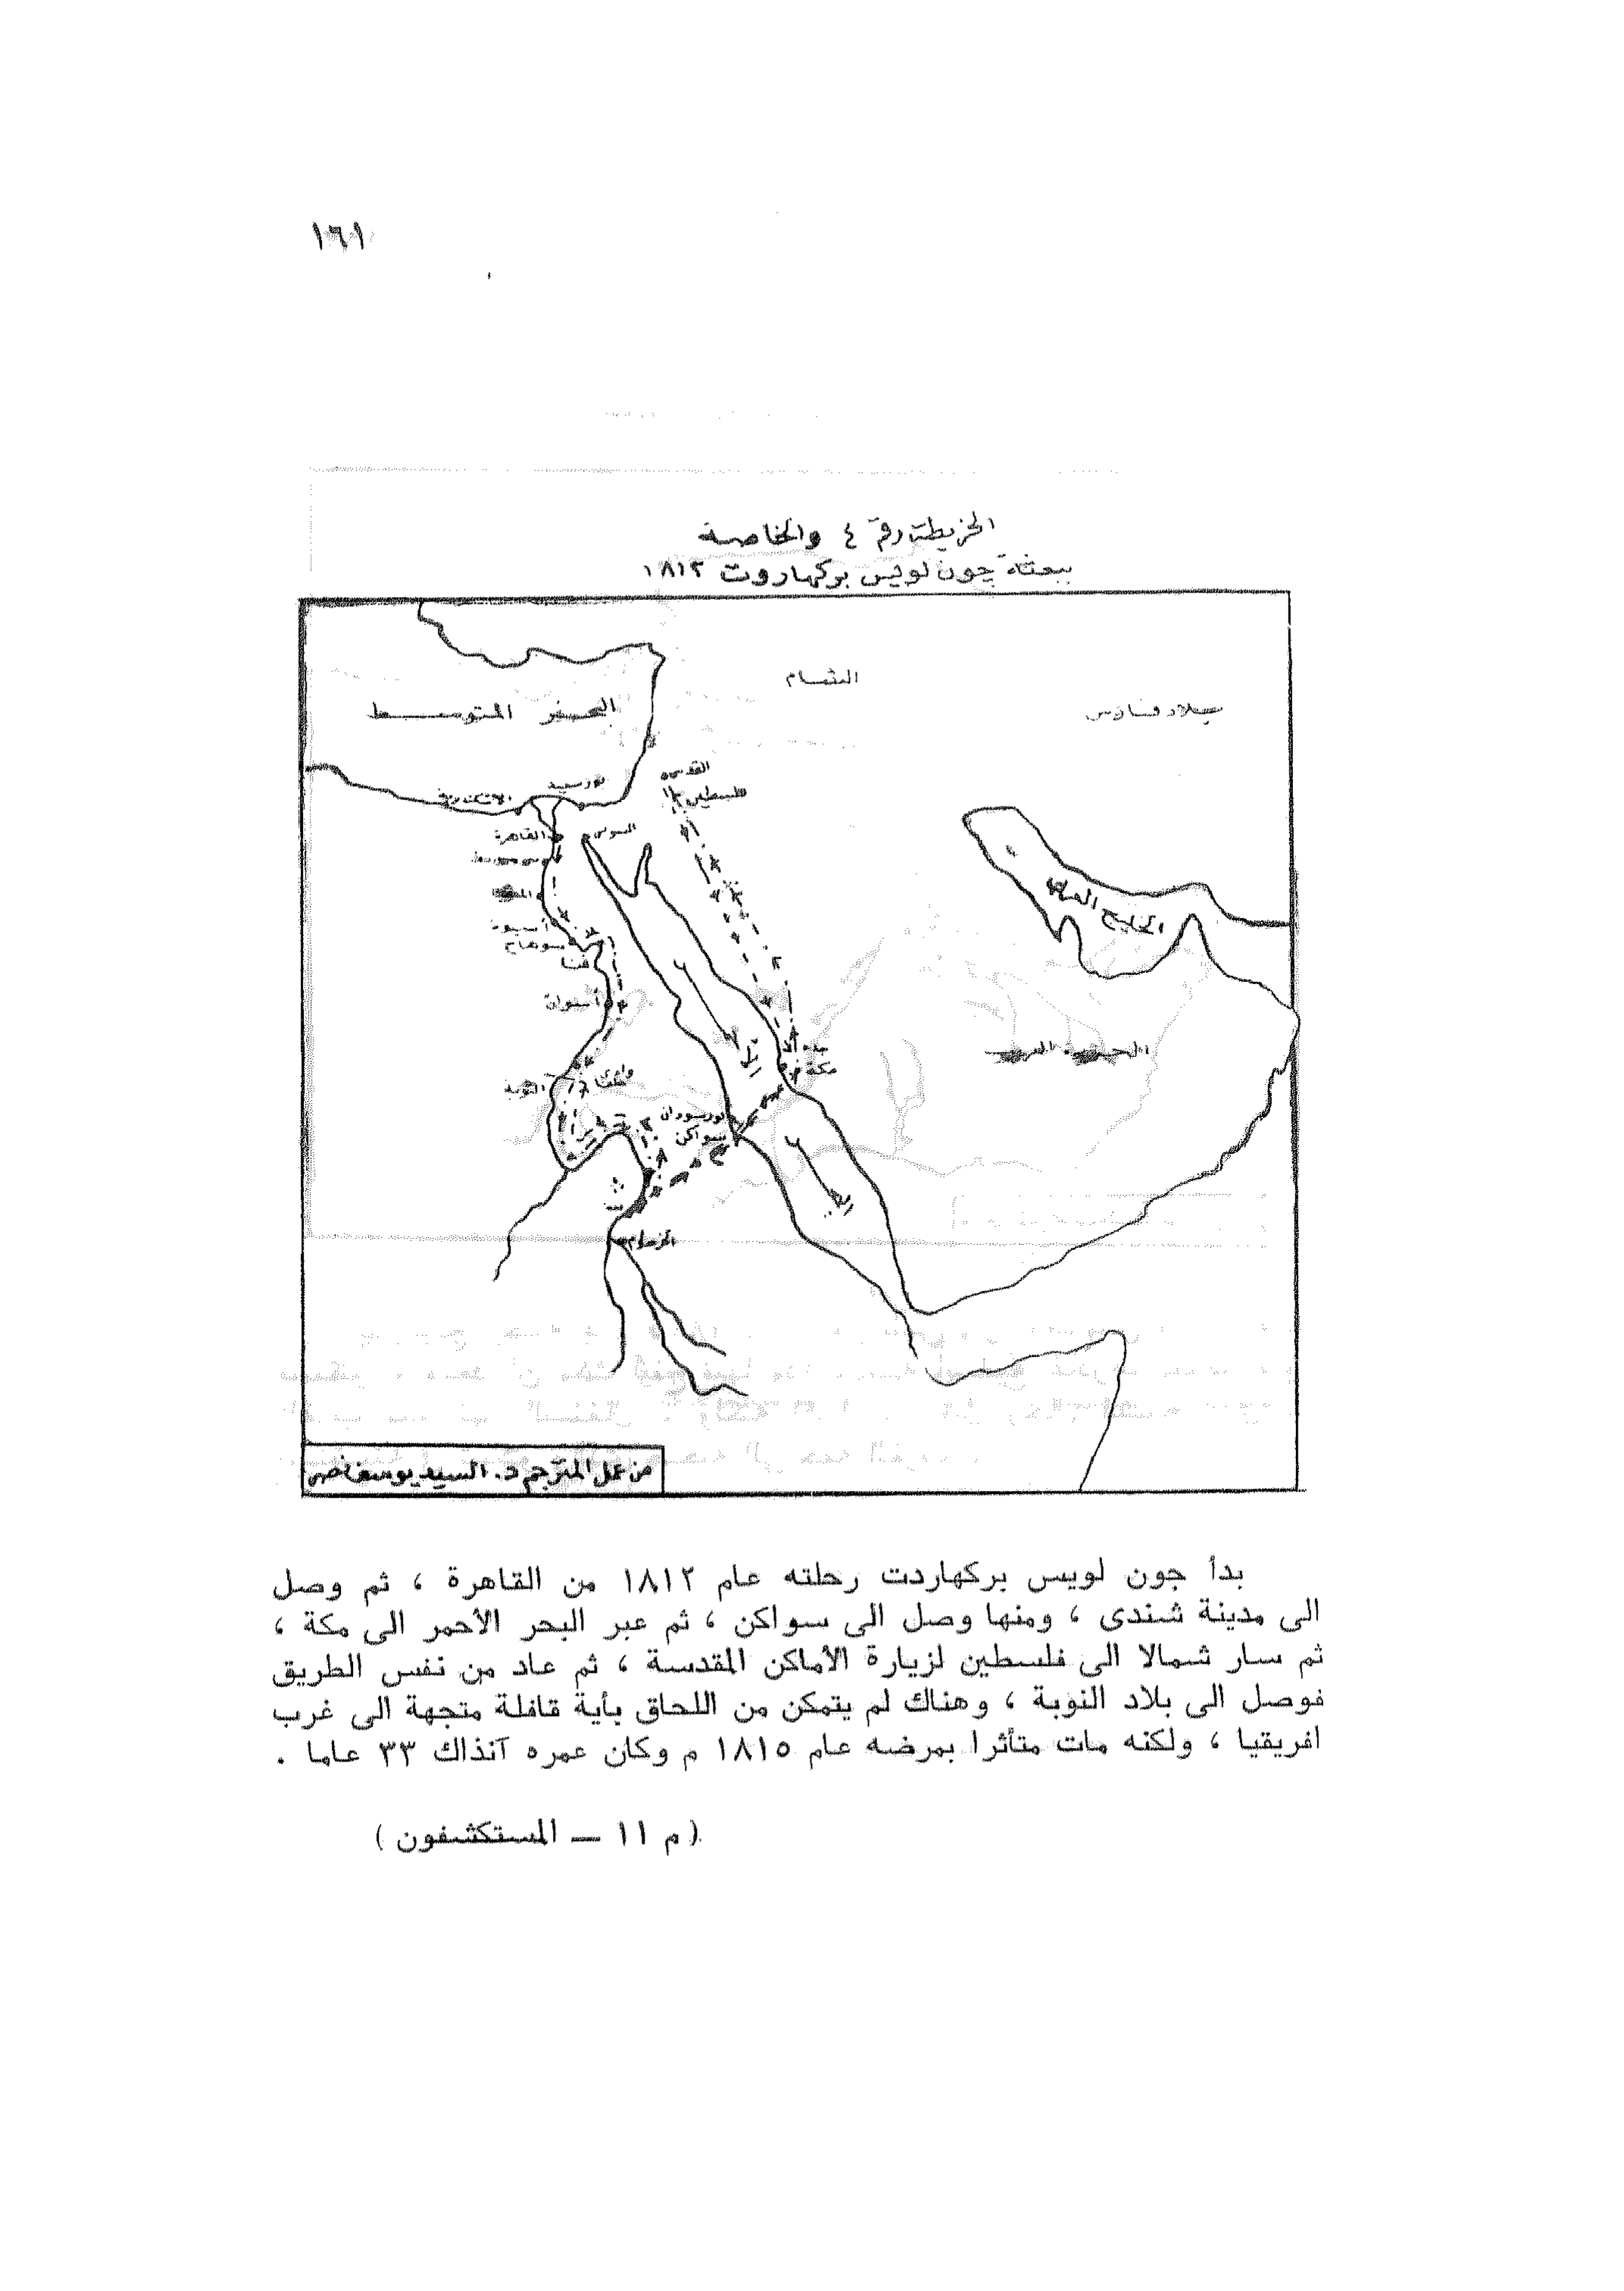 ١٦١
الخريطة رقم ٤ والخاصة
ببعثة چون لويس بركهاروت ١٨١٢
الشام
بلاد فارس
البحر المتوسط
القدس
بورسعيد
فلسطين
الاسكندرية
السويس
القاهرة
الخليج العربى
أسيوط
سوهاج
قنا
أسوان
جدة
مكة
وادى
حلفا
النوبة
بورسودان
سواكن
الخرطوم
من عمل المترجم د. السيد يوسف نصر
بدأ جون لويس بركهاردت رحلته عام ١٨١٢ من القاهرة ، ثم وصل
الى مدينة شندى ، ومنها وصل الى سواكن ، ثم عبر البحر الأحمر الى مكة ،
ثم سار شمالا الى فلسطين لزيارة الأماكن المقدسة ، ثم عاد من نفس الطريق
فوصل الى بلاد النوبة ، وهناك لم يتمكن من اللحاق بأية قافلة متجهة الى غرب
افريقيا ، ولكنه مات متأثرا بمرضه عام ١٨١٥ م وكان عمره آنذاك ٣٣ عاما .
( م ١١ — المستكشفون )